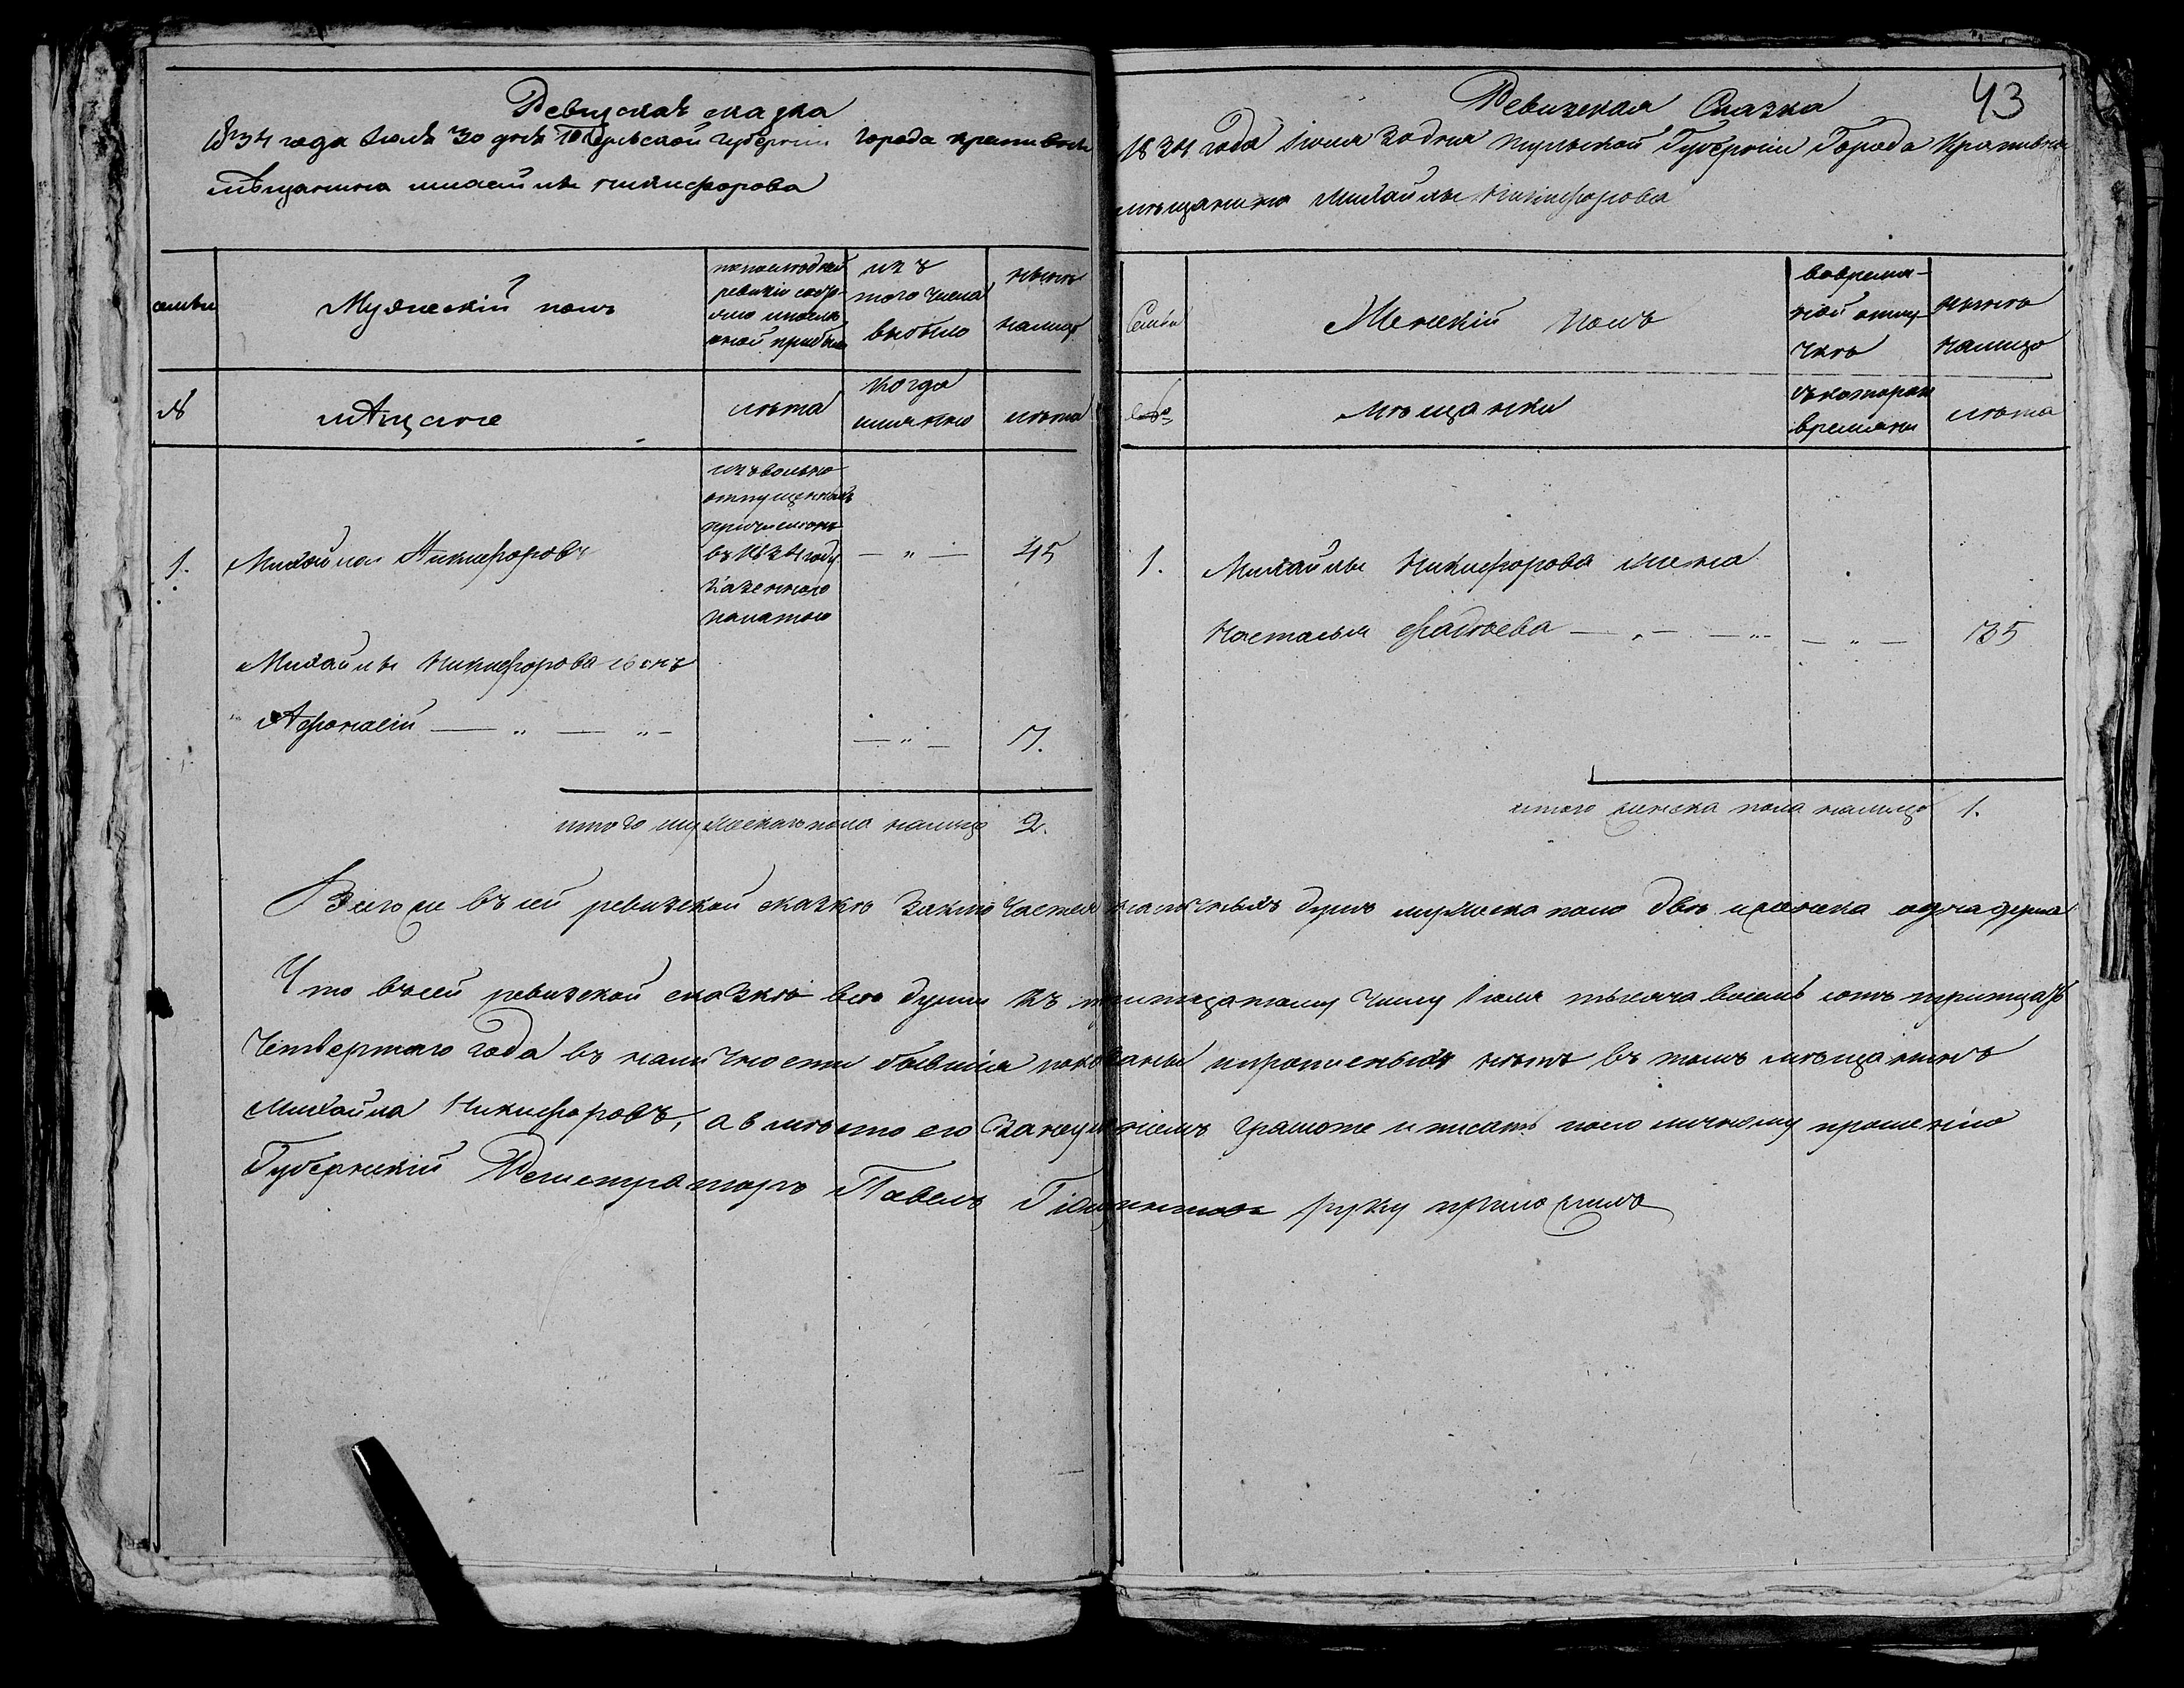 Ревизская сказка
1834 года Июля 30 дня Тульской Губернии города крапивны
мѣщанина михайлы никифорова
семьи
Мужескій полъ
по последней
ревизіи состо-
яло и после
оной прибыло
изъ
того числа
выбыло
нынѣ
налицо
№
мѣщане
лѣта
Когда
имянно
лѣта
1.
Михайла Никифоровъ
изъ вольно
отпущенныхъ
причисленъ
въ 1834 году
Казенною
палатою
— „ —
45
Михайлы Никифорова сынъ
Афонасій — „ — „ —
— „ —
17.
итого мужеска пола налицо 2.
43
Ревизская Сказка
1834 года Июля 30 дня тульской Губерніи Города Крапивны
мѣщанина Михайлы Никифорова
Семьи
Женскій полъ
во времян-
ной отлу-
чкѣ
нынѣ
налицо
мѣщанки
съ котораго
времяни
лѣта
1.
Михайлы Никифорова жена
Настасья Фадѣева — „ — — „ — — „ —
35
итого женска пола налицо 1.
Всего же въ сей ревизской сказкѣ наличныхъ душъ мужеска пола двѣ и женска одна душа
Что въ сей ревизской сказкѣ всѣ души къ тритцатому числу Июля тысяча восемь сотъ тритцать
четвертаго года въ наличности бывшія показаны и прописныхъ нѣтъ въ томъ мѣщанинъ
Михайла Никифоровъ, а вмѣсто его за неумѣніемъ грамоте и писать по его личному прошенію
Губернскій Регистраторъ Павелъ руку приложилъ